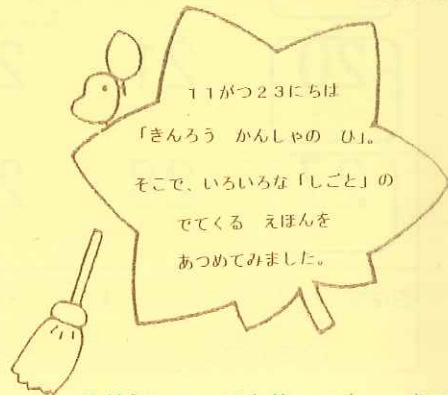 11がつ23にちは
「きんろう　かんしゃの　ひ」。
そこで、いろいろな「しごと」の
でてくる　えほんを
あつめてみました。